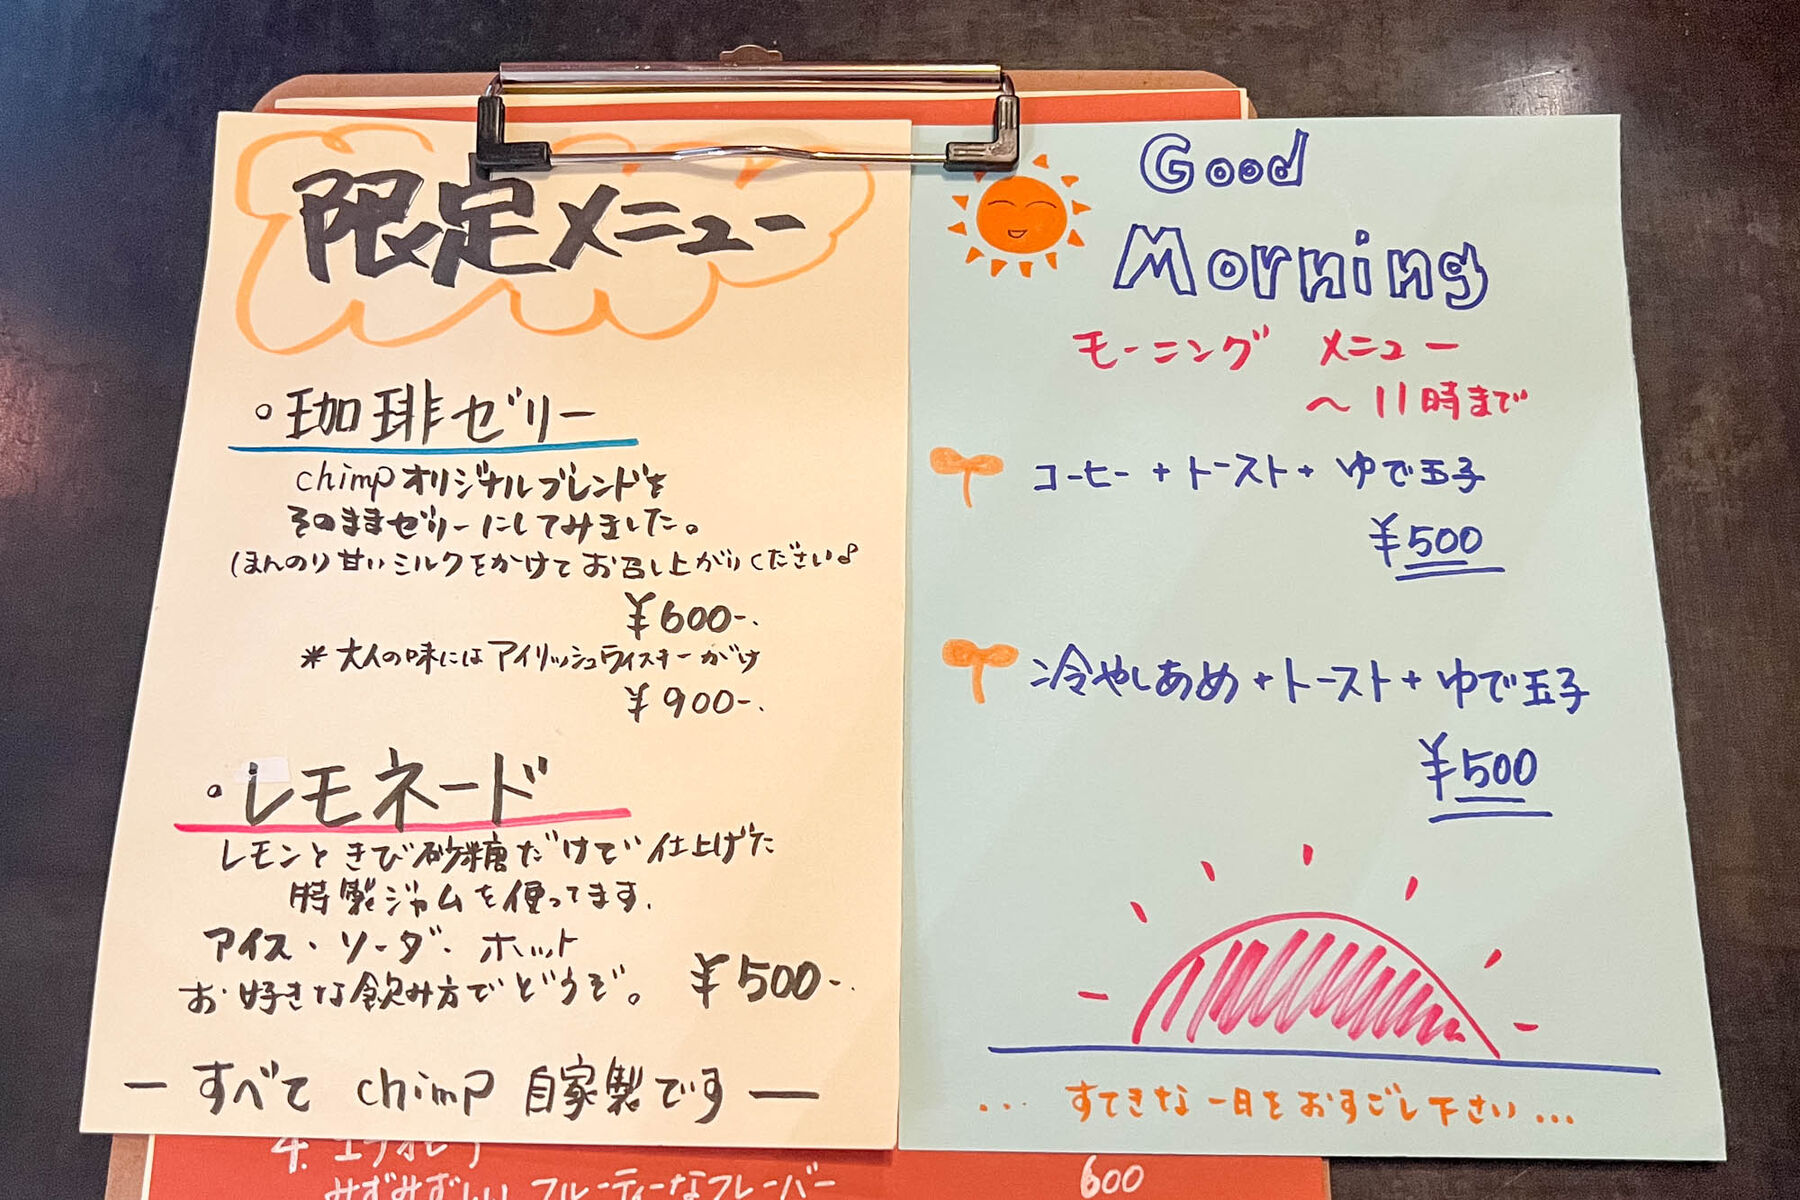 限定メニュー
。珈琲ゼリー
chimpオリジナルブレンドを
そのままゼリーにしてみました。
ほんのり甘いミルクをかけてお召し上がりください♪
¥600-.
*大人の味にはアイリッシュウィスキーがけ
¥900-.
。レモネード
レモンときび砂糖だけで仕上げた
特製ジャムを使ってます.
アイス・ソーダ・ホット
お好きな飲み方でどうぞ。 ¥500-.
ーすべて chimp 自家製ですー
Good
Morning
モーニング メニュー
〜11時まで
コーヒー+トースト+ゆで玉子
¥500
冷やしあめ+トースト+ゆで玉子
¥500
... すてきな一日をおすごし下さい...
4. エチオピア
みずみずしい フルーティーなフレーバー 600